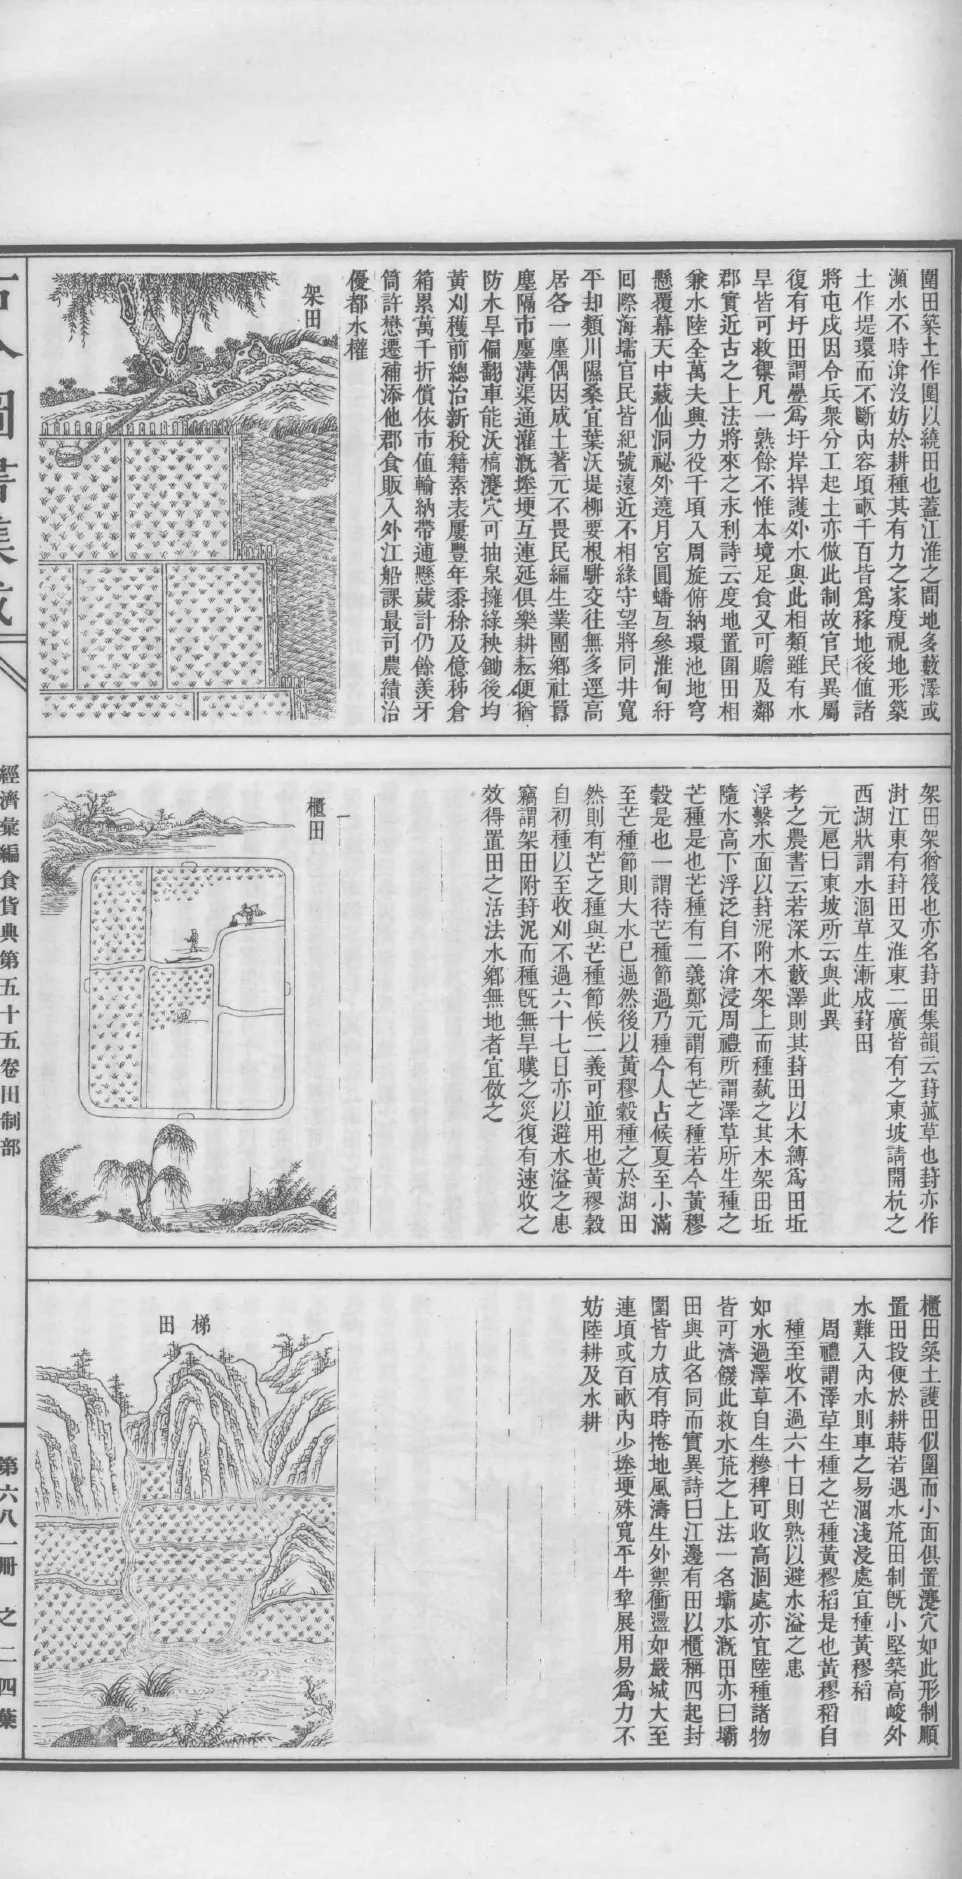 圍田築土作圍以繞田也蓋江淮之間地多藪澤或
瀕水不時渰沒妨於耕種其有力之家度視地形築
土作堤環而不斷內容頃畝千百皆爲稼地後値諸
將屯戍因令兵衆分工起土亦倣此制故官民異屬
復有圩田謂疊爲圩岸捍護外水與此相類雖有水
旱皆可救禦凡一熟餘不惟本境足食又可贍及鄰
郡實近古之上法將來之永利詩云度地置圍田相
兼水陸全萬夫興力役千頃入周旋俯納環池地穹
懸覆幕天中藏仙洞祕外遶月宮圓蟠亙參淮甸紆
囘際海壖官民皆紀號遠近不相緣守望將同井寬
平却類川隰桑宜葉沃堤柳要根駢交往無多逕高
居各一廛偶因成土著元不畏民編生業團鄉社囂
塵隔市廛溝渠通灌漑塍埂互連延俱樂耕耘便猶
防水旱偏翻車能沃槁瀽穴可抽泉擁綠秧鋤後均
黃刈穫前總治新稅籍素表屢豐年黍稌及億秭倉
箱累萬千折償依市値輸納帶逋懸歲計仍餘羨牙
筒許懋遷補添他郡食販入外江船課最司農績治
優都水權
架田
架田架猶筏也亦名葑田集韻云葑菰草也葑亦作
澍江東有葑田又淮東二廣皆有之東坡請開杭之
西湖狀謂水涸草生漸成葑田
元扈曰東坡所云與此異
考之農書云若深水藪澤則其葑田以木縛爲田坵
浮繫水面以葑泥附木架上而種藝之其木架田坵
隨水高下浮泛自不渰浸周禮所謂澤草所生種之
芒種是也芒種有二義鄭元謂有芒之種若今黃穋
穀是也一謂待芒種節過乃種今人占候夏至小滿
至芒種節則大水已過然後以黃穋穀種之於湖田
然則有芒之種與芒種節候二義可並用也黃穋穀
自初種以至收刈不過六十七日亦以避水溢之患
竊謂架田附葑泥而種旣無旱暵之災復有速收之
效得置田之活法水鄉無地者宜倣之
櫃田
櫃田築土護田似圍而小面俱置瀽穴如此形制順
置田段便於耕蒔若遇水荒田制旣小堅築高峻外
水難入內水則車之易涸淺浸處宜種黃穋稻
周禮謂澤草生種之芒種黃穋稻是也黃穋稻自
種至收不過六十日則熟以避水溢之患
如水過澤草自生糝稗可收高涸處亦宜陸種諸物
皆可濟饑此救水荒之上法一名壩水漑田亦曰壩
田與此名同而實異詩曰江邊有田以櫃稱四起封
圍皆力成有時捲地風濤生外禦衝盪如嚴城大至
連頃或百畝內少塍埂殊寬平牛犂展用易爲力不
妨陸耕及水耕
梯田
經濟彙編食貨典第五十五卷田制部
第六八一冊 之二四葉